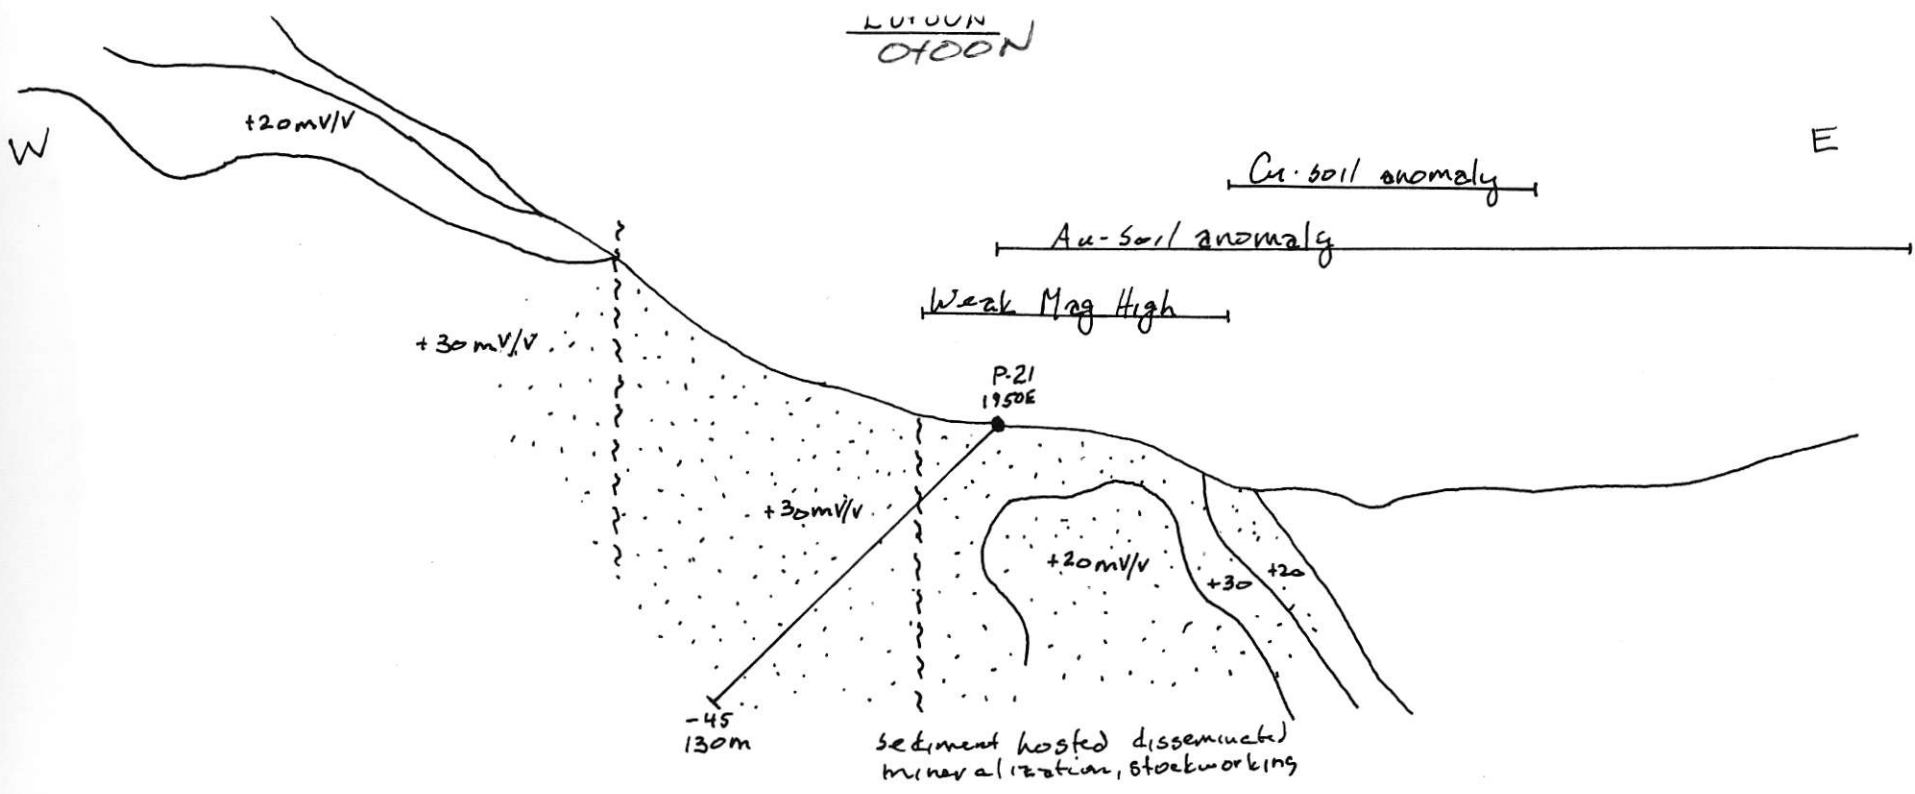 0+00N
+20mV/V
W
E
Cu-soil anomaly
Au-soil anomaly
Weak Mag High
+30mV/V
P-21
1950E
+30mV/V
+20mV/V
+30
+20
-45
130m
Sediment hosted disseminated
mineralization, stockworking